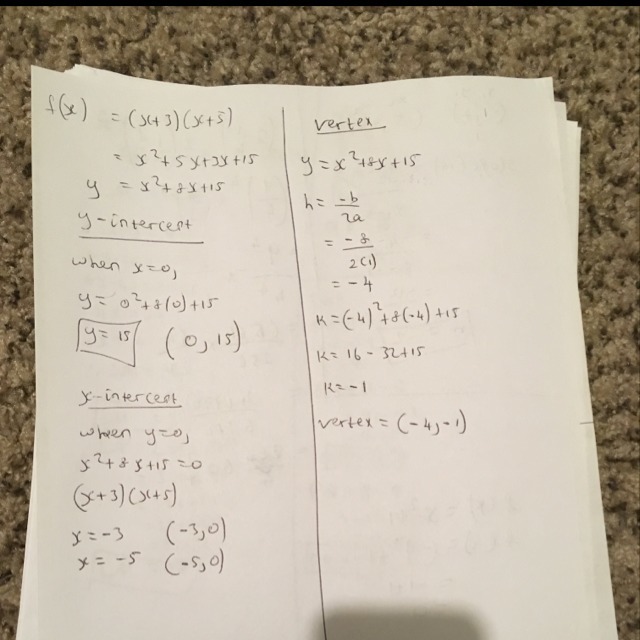 f(x) = (x+3)(x+5)
= x²+5x+3x+15
y = x²+8x+15
y-intercept
when x=0,
y= 0²+8(0)+15
y=15 (0,15)
x-intercept
when y=0,
x²+8x+15=0
(x+3)(x+5)
x=-3 (-3,0)
x=-5 (-5,0)
vertex
y=x²+8x+15
h= -b
2a
= -8
2(1)
= -4
K=(-4)²+8(-4)+15
K= 16-32+15
K=-1
vertex= (-4,-1)